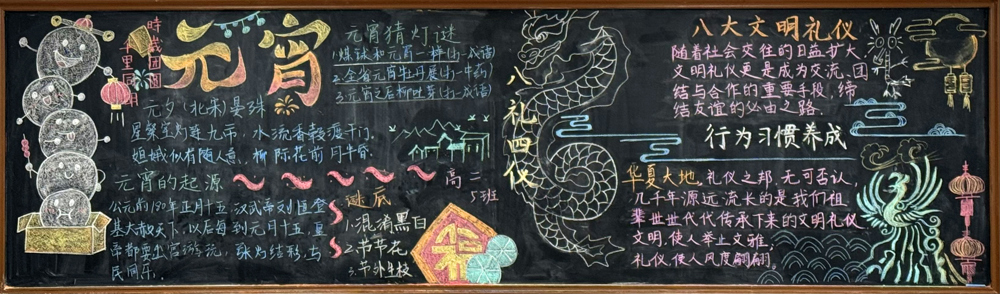 時歲团圆
千里同月
元宵
元夕(北宋)晏殊
星繁
灯
九
,水
香
渡千门,
姮娥似有随人意,柳际花前月半昏.
元宵的起源
公元前180年正月十五,汉武帝刘恒登
基大赦天下,以后每到元月十五,皇
帝都要出宫游玩,
灯结彩,与
民同乐.
元宵猜灯谜
1.煤球和元宵一样(打一成语)
2.全省元宵牡丹展(打一中药)
3.元宵之后柳吐芽(打一成语)
谜底
1.混淆黑白
2.节节花
3.节外生枝
高二
5班
八礼四仪
八大文明礼仪
随着社会交往的日益扩大
文明礼仪更是成为交流,团
结与合作的重要手段,缔
结友谊的必由之路.
行为习惯养成
华夏大地,礼仪之邦,无可否认,
几千年源远流长的是我们祖
辈世世代代传承下来的文明礼仪
文明,使人举止文雅;
礼仪,使人风度翩翩.